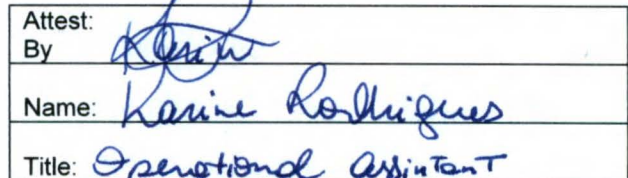 Attest:
By
Name: Karine Rodrigues
Title: Operational assintant